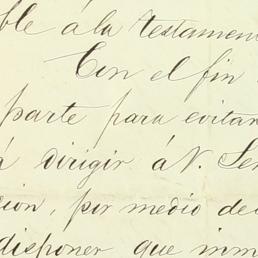 ble á la testamen
Con el fin
parte para evitar
á dirigir á V. Se
cion, por medio de
disponer que inm